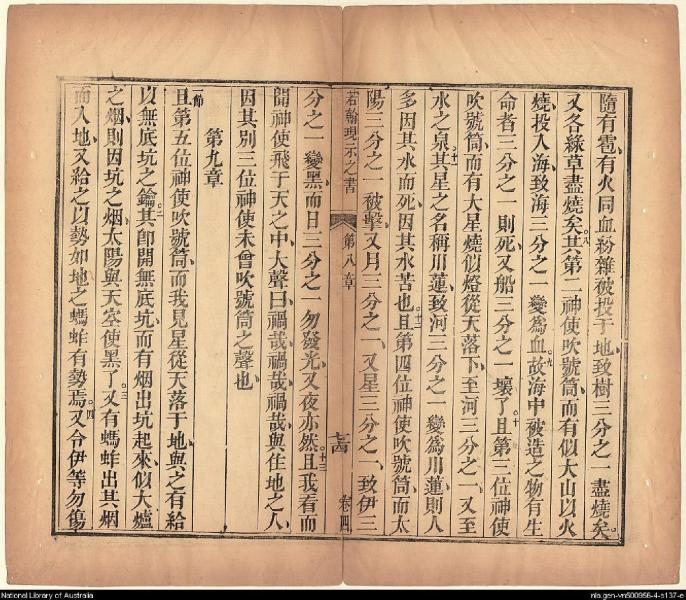 隨有雹有火同血粉雜被投于地致樹三分之一盡燒矣
又各綠草盡燒矣八其第二神使吹號筒而有似大山以火
燒投入海致海三分之一變為血九故海中被造之物有生
命者三分之一則死又船三分之一壞了十且第三位神使
吹號筒而有大星燒似燈從天落下至河三分之一又至
水之泉十一其星之名稱川蓮致河三分之一變為川蓮則人
多因其水而死因其水苦也十二且第四位神使吹號筒而太
陽三分之一被擊又月三分之一又星三分之一致伊三
若翰現示之書 第八章 卷四
分之一變黑而日三分之一勿發光又夜亦然十三且我看而
聞神使飛于天之中大聲曰禍哉禍哉禍哉與住地之人
因其別三位神使未曾吹號筒之聲也
第九章
節且第五位神使吹號筒而我見星從天落于地與之有給
以無底坑之鑰二其即開無底坑而有烟出坑起來似大爐
之烟則因坑之烟太陽與天空使黑了三又有螞蚱出其烟
而入地又給之以勢如地之螞蚱有勢焉四又令伊等勿傷
National Library of Australia
nla.gen-vn500956-4-s137-e